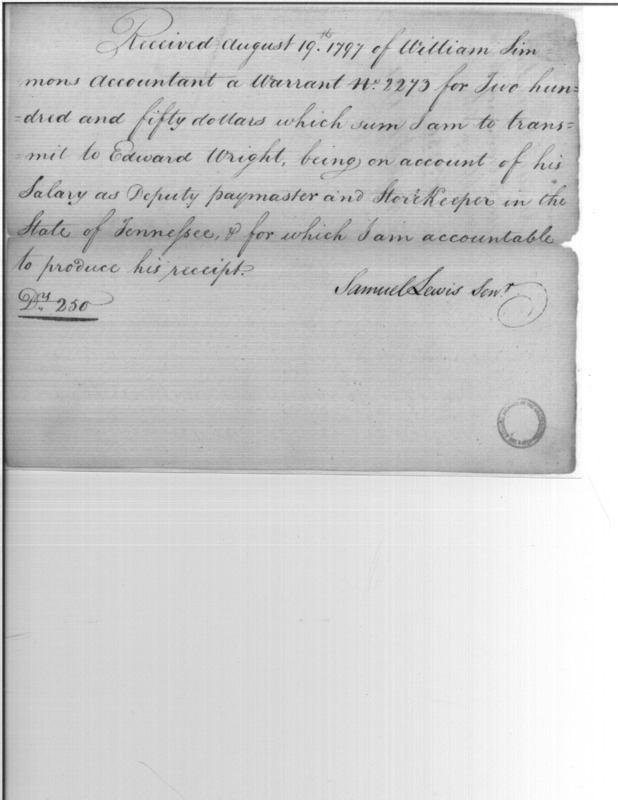 Received August 19th. 1797 of William Sim-
mons Accountant a Warrant No. 2273 for Two hun=
=dred and fifty dollars which sum I am to trans=
=mit to Edward Wright, being on account of his
Salary as Deputy paymaster and StoreKeeper in the
State of Tennessee, & for which I am accountable
to produce his receipt.
Samuel Lewis Senr
Drs. 250